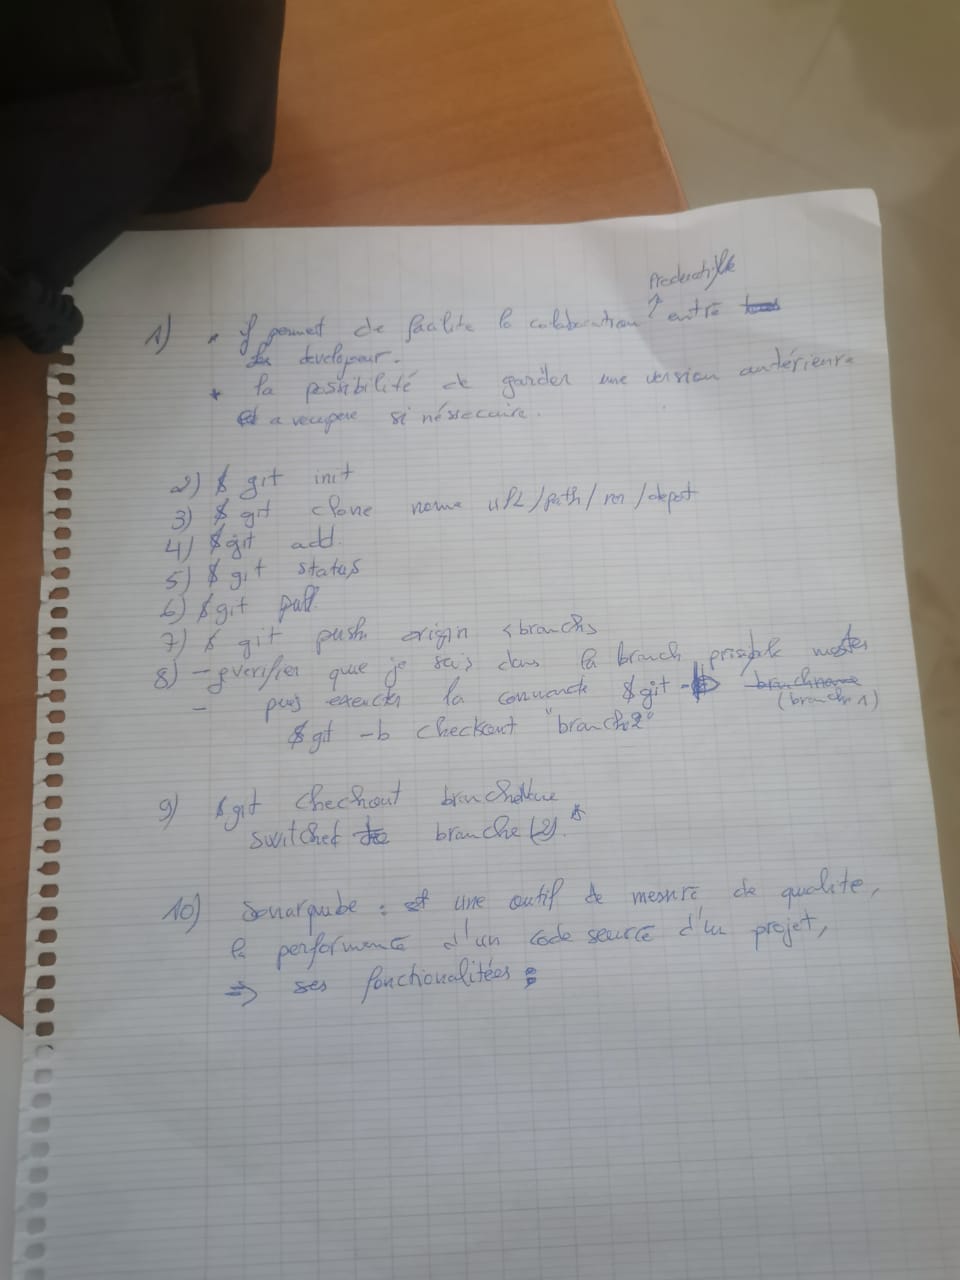 Productivité
1) * Il permet de facilite la colaboration ↑ entre
les developeur.
* la possibilité de garder une version antérienre
a recupere si néssecaire.
2) $ git init
3) $ git clone nome url/path/ /depot
4) $git add.
5) $ git status
6) $git pull.
7) $ git push origin <branchs
8) - verifier que je suis dans la branch prisipale master
- puis executer la commande $git (branch 1)
$git -b checkout "branch2"
9) $git chechout branche
switched branche (2).
10) Sonarqube : est une outil de mesure de qualite,
la performance d'un code source d'un projet,
⇒ ses fonctionalitées :